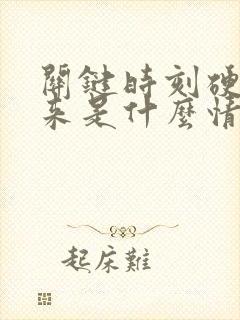 關鍵時刻硬
來是什麼情
起床難